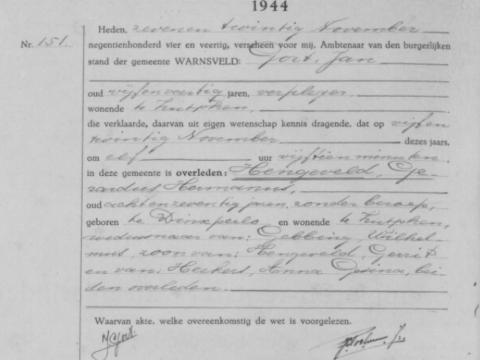 1944
Nr. 151.
Heden, zevenen twintig November
negentienhonderd vier en veertig, verscheen voor mij, Ambtenaar van den burgerlijken
stand der gemeente WARNSVELD: Gort, Jan
oud vijfenveertig jaren, verpleger
wonende te Zutphen,
die verklaarde, daarvan uit eigen wetenschap kennis dragende, dat op vijfen
twintig November dezes jaars,
om elf uur vijftien minuten
in deze gemeente is overleden: Hengeveld, Ge-
rardus Hermanus,
oud achtenzeventig jaren, zonder beroep,
geboren te Dinxperlo en wonende te Zutphen,
weduwnaar van: Gebbing, Wilhel-
mina, zoon van: Hengeveld, Gerrit
en van: Herkert, Anna Gesina, bei-
den overleden.
Waarvan akte, welke overeenkomstig de wet is voorgelezen.
JGort